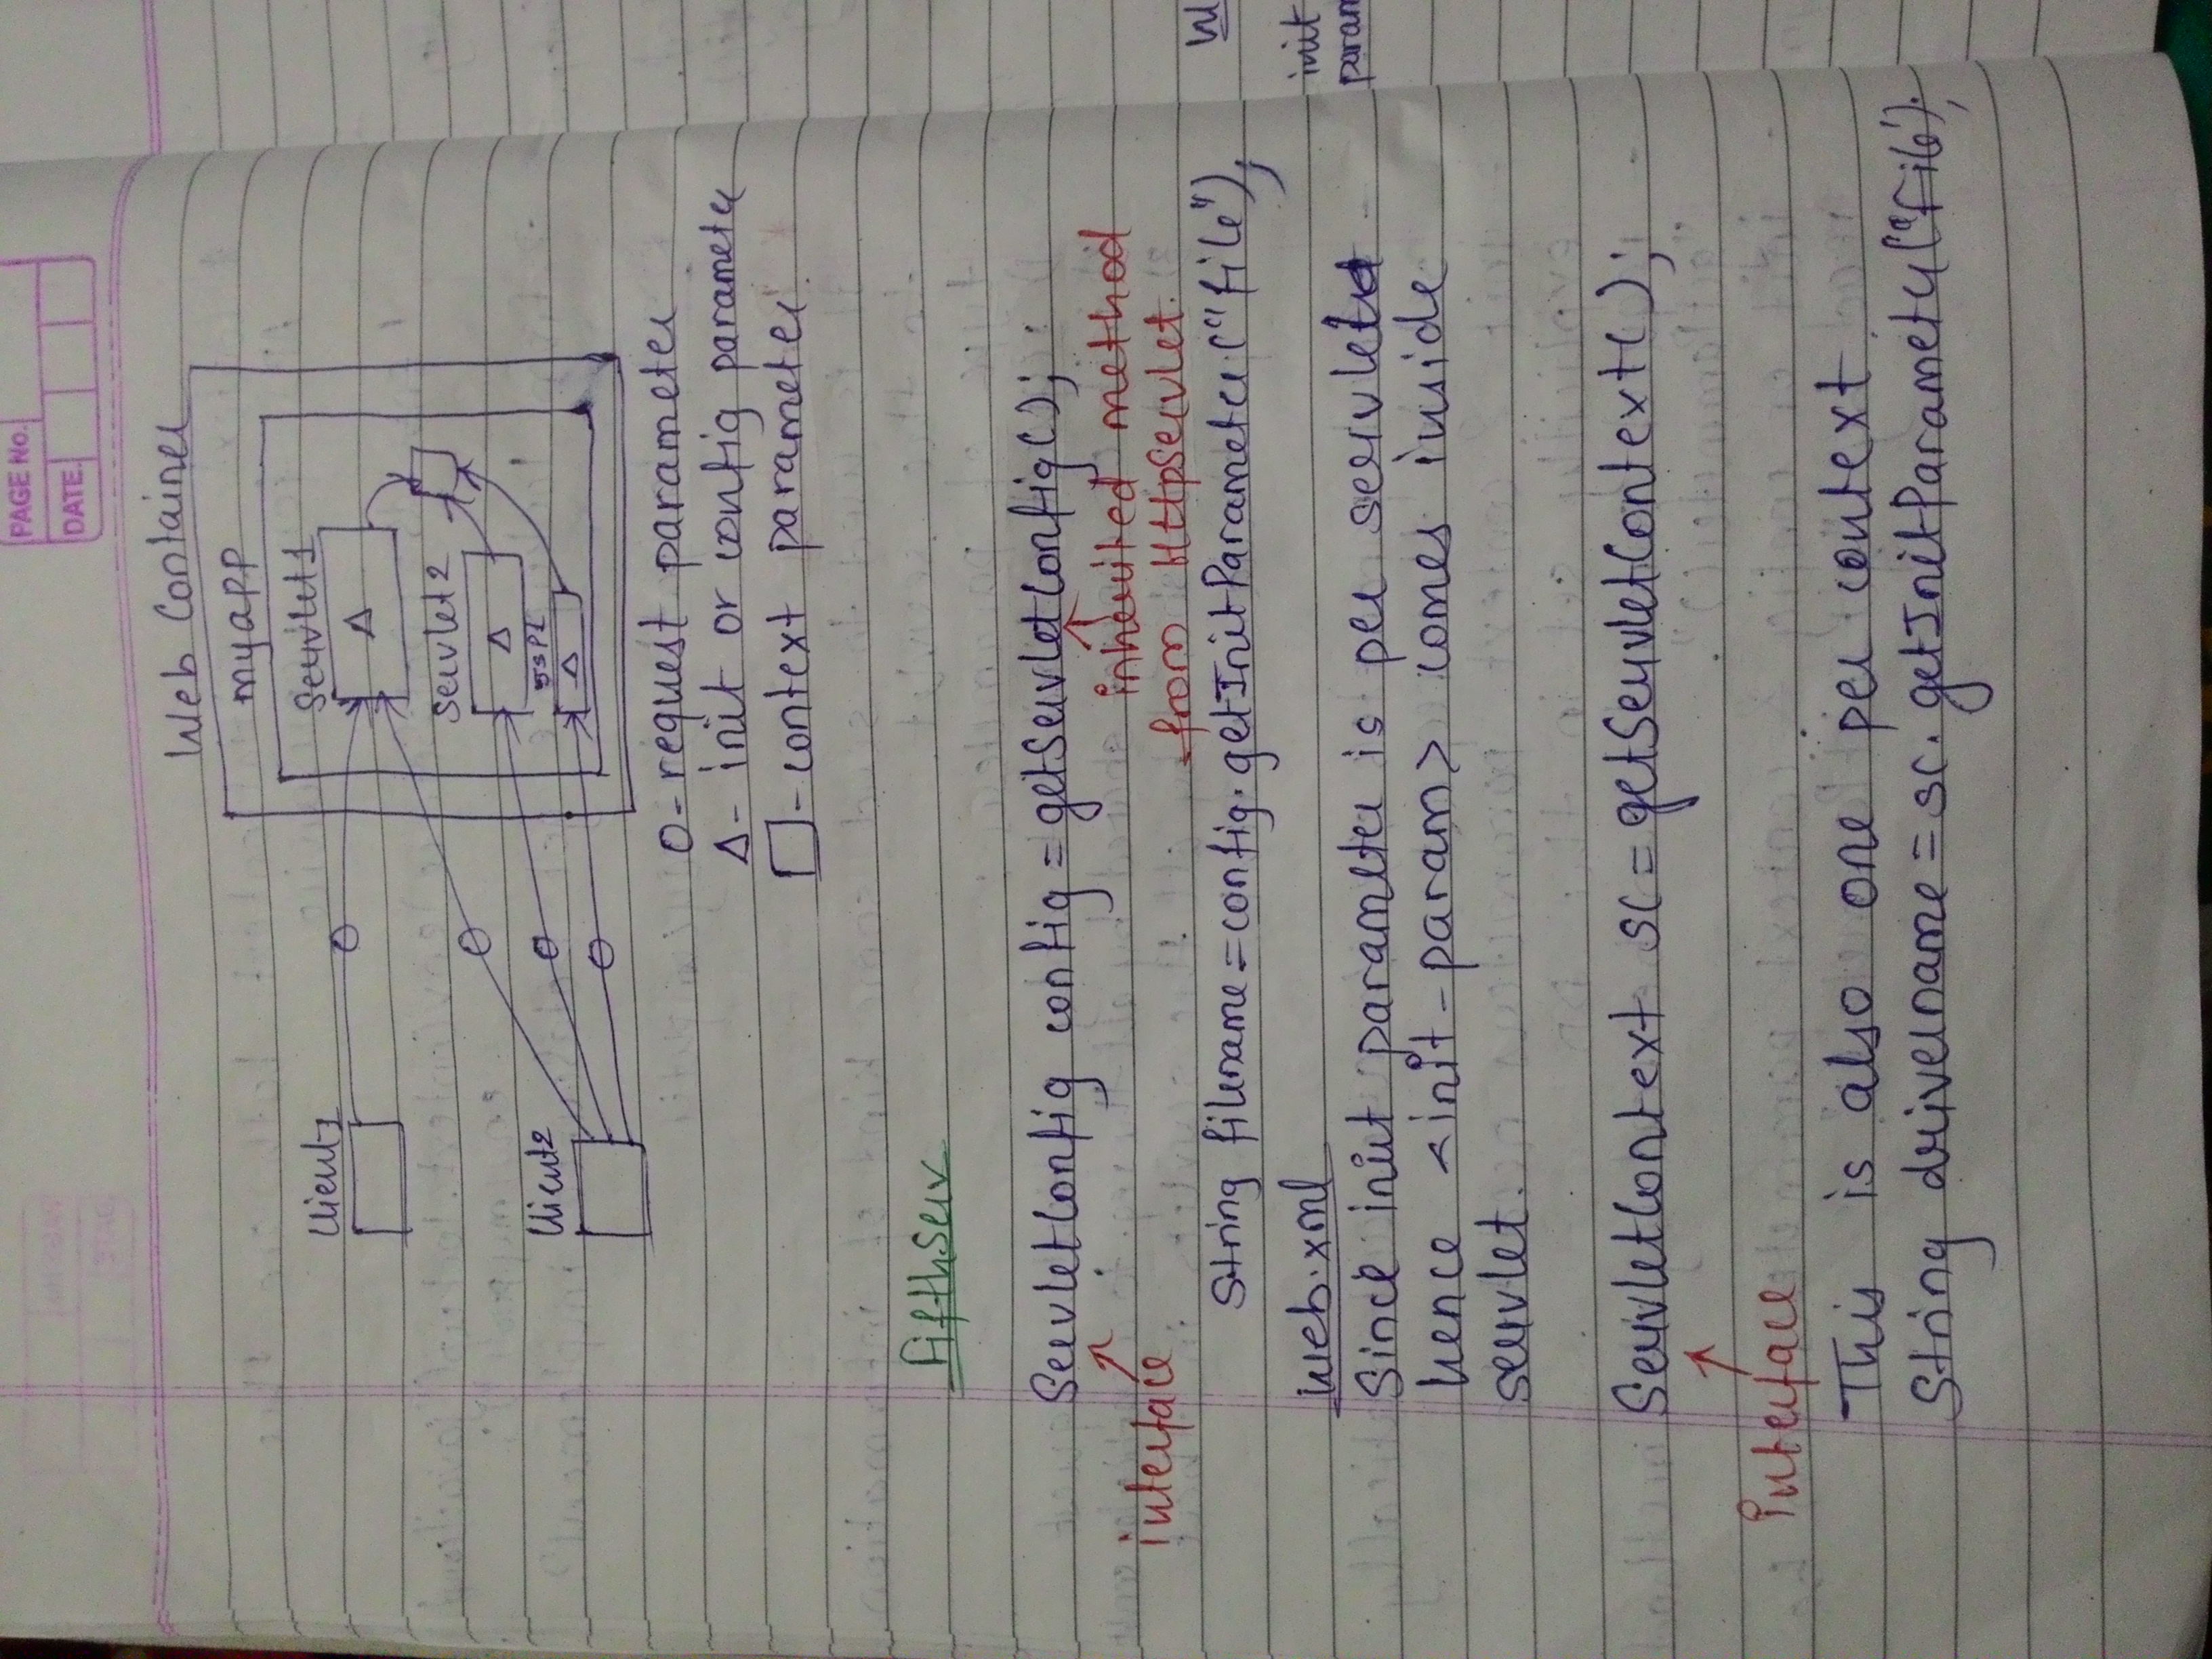 PAGE No.
DATE.
Web Container
myapp
Client1
Servlet1
Δ
Servlet2
Δ
Client2
JSP1
Δ
O- request parameter
Δ- init or config parameter
□- context parameter
FifthServ
ServletConfig config = getServletConfig();
interface
inherited method
from HttpServlet.
String filename = config.getInitParameter("file");
web.xml
Since init parameter is per servlet
hence <init-param> comes inside
servlet.
ServletContext sc = getServletContext();
Interface
This is also one per context
String drivername = sc.getInitParameter("file");
init
param